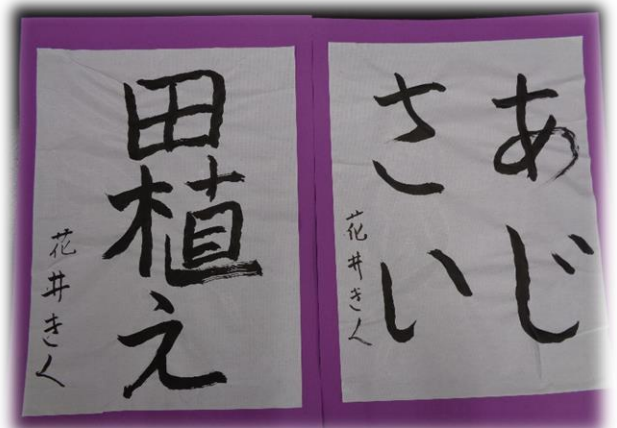 あじ
さい
花井きく
田植え
花井きく